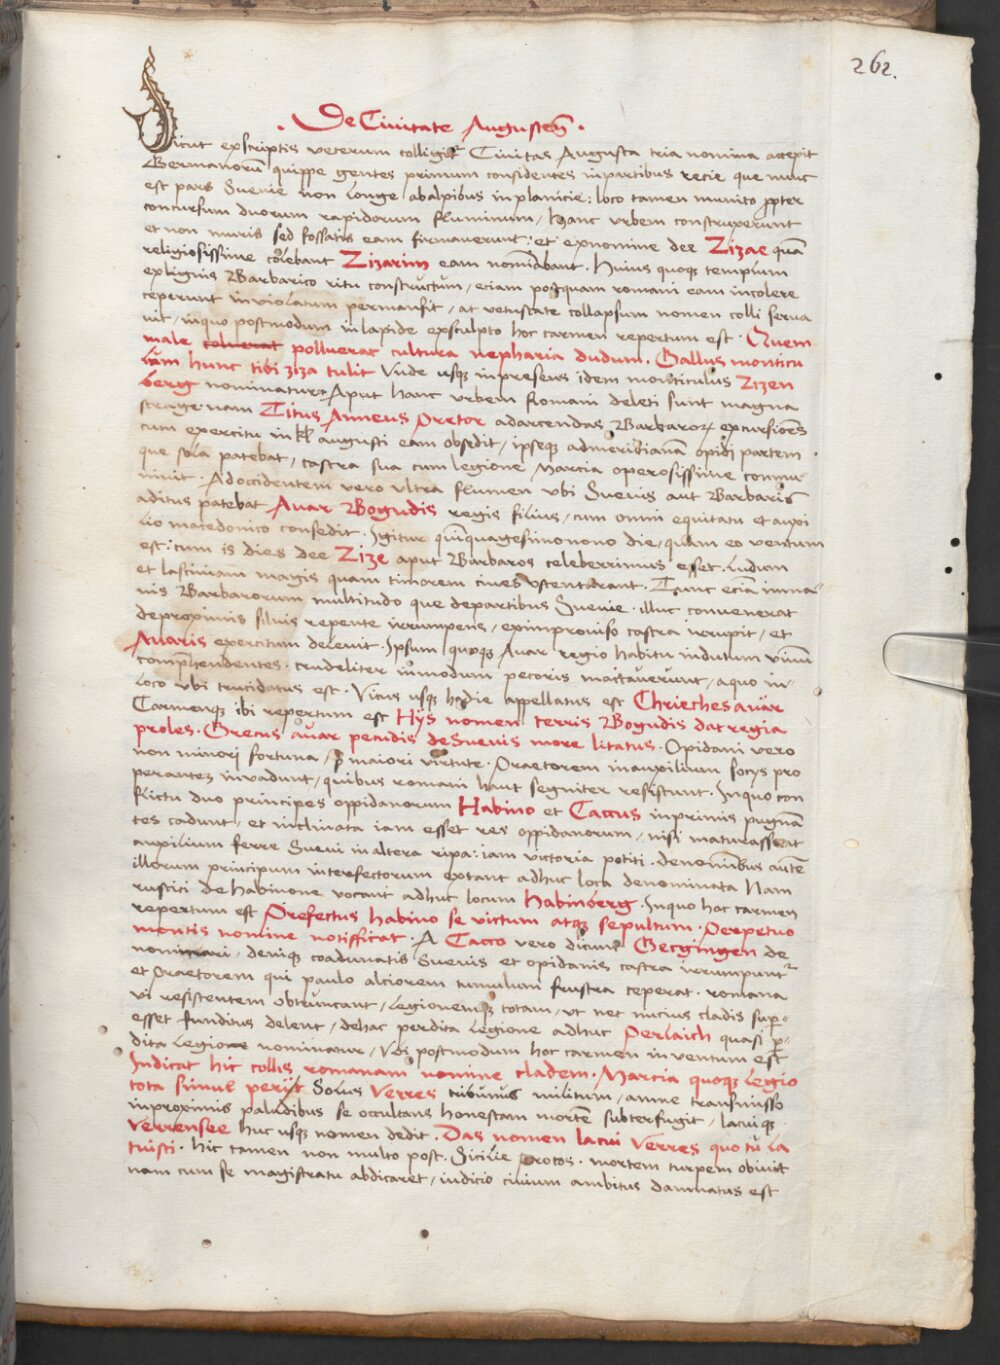 262.
· De Ciuitate Augusteñ ·
Sicut ex scriptis veterum colligit᷑ Ciuitas Augusta tria nomina accepit
Germanorũ quippe gentes primum considentes in partibus recie que nunc
est pars Sueuie non longe ab alpibus in planicie: loco tamen munito ꝓpter
concursum duorum rapidorum fluminum / hanc vrbem construxerunt
et non muris sed fossatis eam firmauerunt: et ex nomine dee Zizae quã
religiosissime colebant Zizarim eam nominabant. Huius quoqꝫ templum
ex lignis Barbarico ritu constructum / eciam postquam romani eam incolere
ceperunt inuiolatum permansit / at vetustate collapsum nomen colli serua
uit / in quo postmodum in lapide exsculpto hoc carmen repertum est · Quem
male coluerat polluerat cultura nepharia dudum. Gallus monticu
lũm hunc tibi ziza tulit Vnde usqꝫ in presens idem monticulus Zizen
berg nominatur· Aput hanc vrbem Romani deleti sunt magna
strage nam Titus Anneus Pretor ad arcendas Barbaroꝝ excursiões
cum exercitu in kł augusti eam obsedit / ipseqꝫ ad meridianã opidi partem
que sola patebat / castra sua cum legione Marcia operosissime commu
niuit · Ad occidentem vero vltra flumen vbi Sueuis aut Barbaris
aditus patebat Auar Bogudis regis filius / cum omni equitatu et auxi
lio macedonico consedit · Igitur quĩquagesimo nono die / quam eo ventum
est: cum is dies dee Zize aput Barbaros celeberrimus esset · ludum
et lasciuiam magis quam timorem ciues ostentarunt · Tunc eciã imma
nis Barbarorum multitudo que de partibus Sueuie · illuc conuenerat
de proximis siluis repente irrumpens / ex improuiso castra irrupit / et
Auaris exercitum deleuit · Ipsum quoqꝫ Auar regio habitu indutum viuũ
comp̃hendentes · crudeliter in modum pecoris mactauerunt / a quo in
loco vbi trucidatus est · Vicus usqꝫ hodie appellatus est Chriechesauar
Carmenqꝫ ibi repertum est Hijs nomen terris Bogudis dat regia
proles · Grecus auar pecudis de Sueuis more litatus · Opidani vero
non minori fortuna / ꝫ maiori virtute · Praetorem in auxilium socijs pro
perantes inuadunt / quibus romani haut segniter resistunt · In quo con
flictu duo principes oppidanorum Habino et Caccus in primis pugnã
tes cadunt / et inclinata iam esset res oppidanorum / nisi maturassent
auxilium ferre Sueui in altera ripa: iam victoria potiti · de nominibus autẽ
illorum principum interfectorum extant adhuc loca denominata Nam
rustici de habinone vocant adhuc locum Habinberg · In quo hoc carmen
repertum est Prefectus habino se victum atqꝫ sepultum · Perpetuo
montis nomine notifficat · A Cacco vero dicunt Geggingen de
nominari · deniqꝫ coadunatis Sueuis et opidanis castra irrumpunt᷑
et Praetorem qui paulo alciorem tumulum frustra ceperat · romana
vi resistentem obtruncant / legionemqꝫ totam / vt nec nucius cladis sup̱
esset funditus delent / de hac perdita legione adhuc Perlaich quasi p̱
dita legione nominatur / Vbi postmodum hoc carmen inuentum est
Indicat hic collis romanam nomine cladem · Marcia quoqꝫ legio
tota simul perijt Solus Verres tribunus militum / amne transmisso
in proximis paludibus se occultans honestam mortẽ subterfugit / lacuiqꝫ
Verrensee huc usqꝫ nomen dedit · Das nomen lacui Verres quo tũ la
tuisti · hic tamen non multo post · Sicilie protos · mortem turpem obiuit
nam cum se magistratu abdicaret / iudicio ciuium ambitus damnatus est